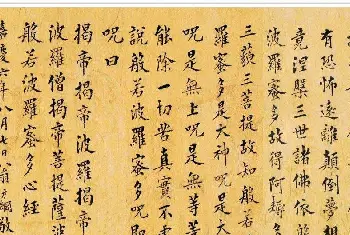 有恐怖遠離顛倒夢想
竟涅槃三世諸佛依般
波羅蜜多故得阿耨多
三藐三菩提故知般若
羅蜜多是大神呪是大
呪是無上呪是無等等
能除一切苦真實不虛
說般若波羅蜜多呪即
呪曰
揭帝揭帝波羅揭帝
波羅僧揭帝菩提薩婆
般若波羅蜜多心經
嘉慶六年八月七日敬